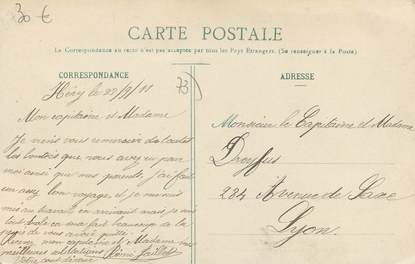 30 €
CARTE POSTALE
La Correspondance au recto n'est pas acceptée par tous les Pays Etrangers. (Se renseigner à la Poste)
CORRESPONDANCE
ADRESSE
73)
Héry le 29/9/11
Mon capitaine et Madame
Je viens vous remercier de toutes
les bontées que vous avez eu pour
moi ainsi que mes parents, j'ai fait
un assez bon voyage et je me suis
mis au travail en arrivant mais je suis
tout
de vous avoir quitté
Recevez mon capitaine et Madame mes
meilleures salutations Rémi
Votre tout dévoué
Monsieur le Capitaine et Madame
Dreyfus
284 Avenue de Saxe
Lyon.